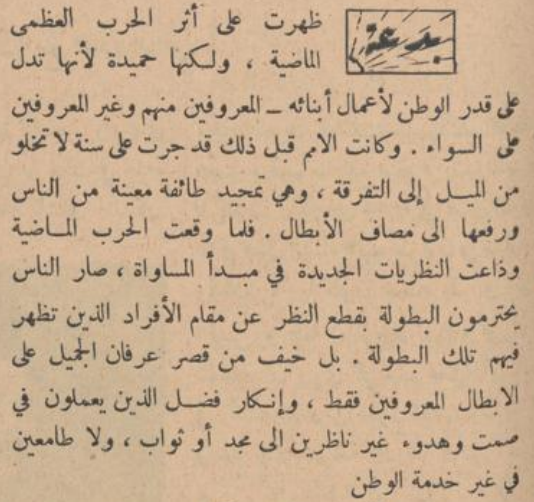 بدعة
ظهرت على أثر الحرب العظمى
الماضية ، ولكنها حميدة لأنها تدل
على قدر الوطن لأعمال أبنائه ـ المعروفين منهم وغير المعروفين
على السواء . وكانت الامم قبل ذلك قد جرت على سنة لا تخلو
من الميل إلى التفرقة ، وهي تمجيد طائفة معينة من الناس
ورفعها الى مصاف الأبطال . فلما وقعت الحرب الماضية
وذاعت النظريات الجديدة في مبدأ المساواة ، صار الناس
يحترمون البطولة بقطع النظر عن مقام الأفراد الذين تظهر
فيهم تلك البطولة . بل خيف من قصر عرفان الجميل على
الابطال المعروفين فقط ، وإنكار فضل الذين يعملون في
صمت وهدوء غير ناظرين الى مجد أو ثواب ، ولا طامعين
في غير خدمة الوطن